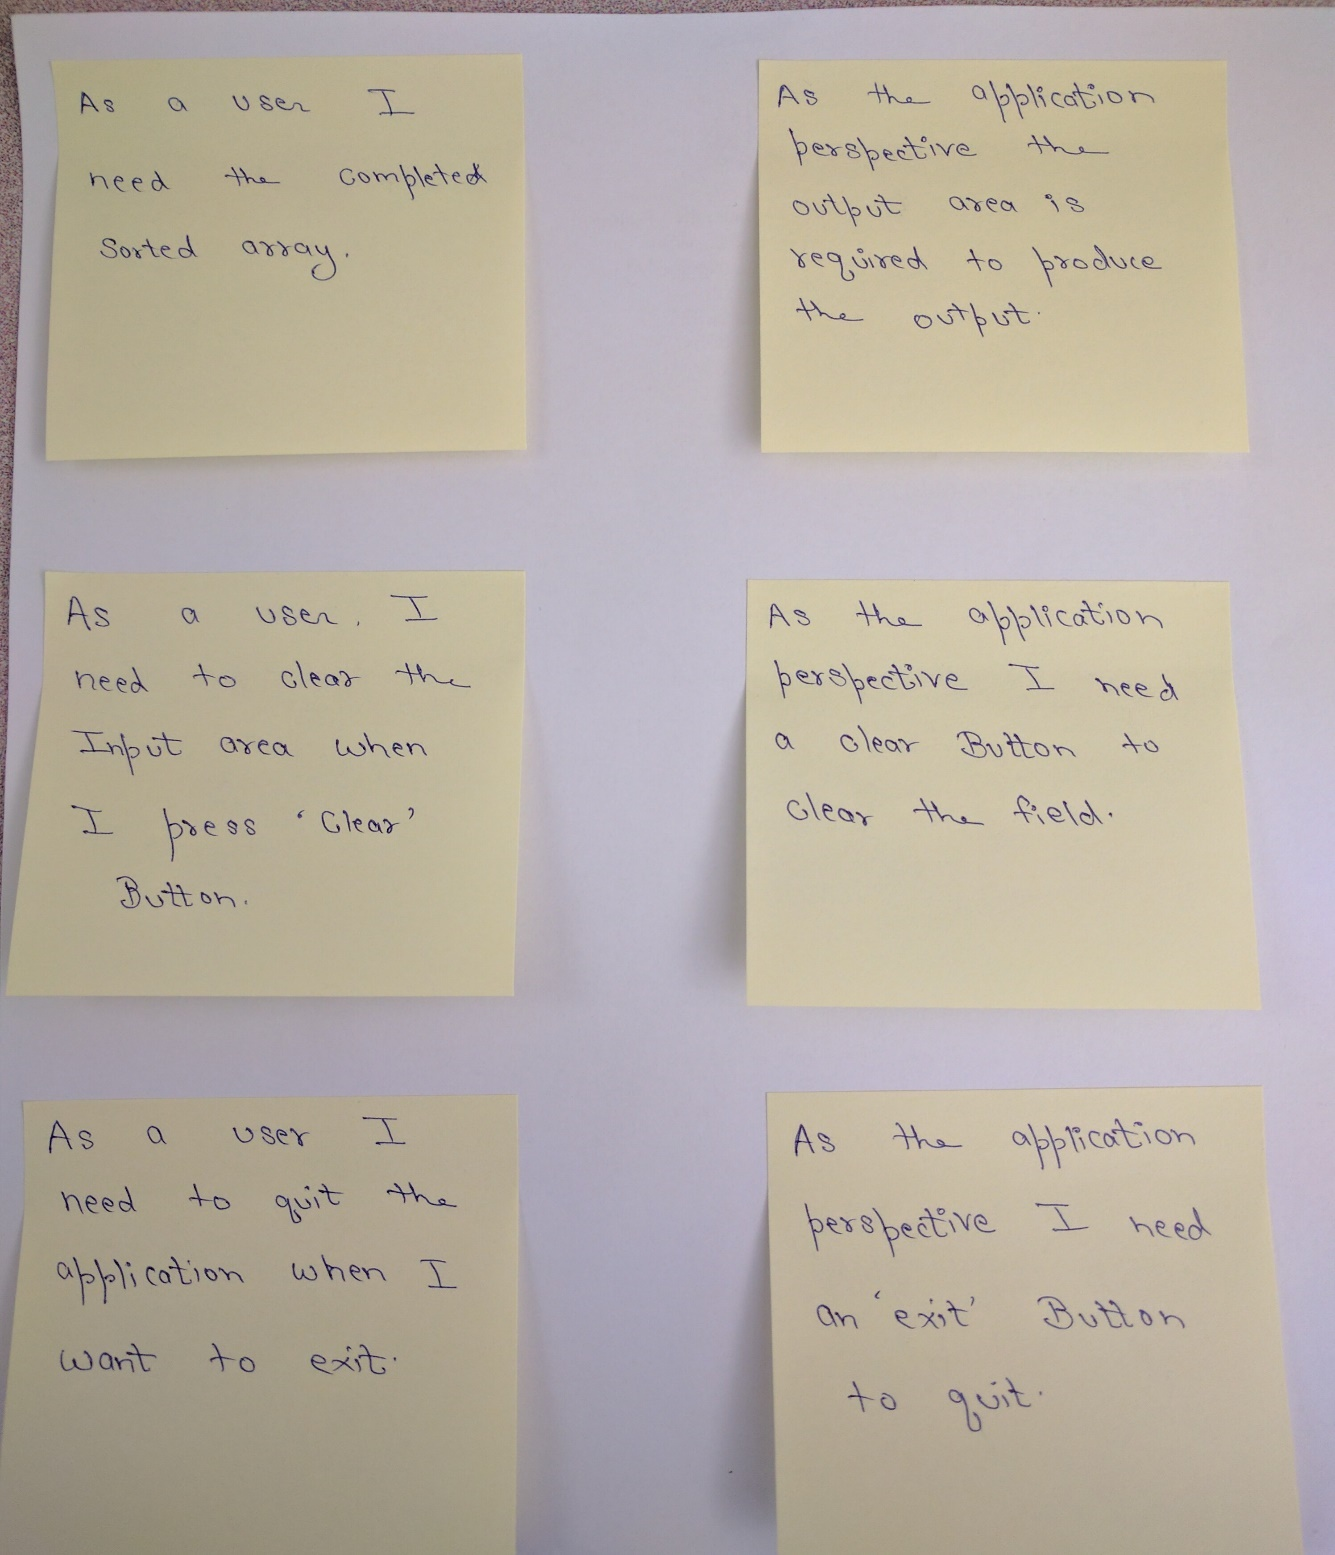 As a user I
need the completed
Sorted array.
As the application
perspective the
output area is
required to produce
the output.
As a user, I
need to clear the
Input area when
I press 'Clear'
Button.
As the application
perspective I need
a clear Button to
clear the field.
As a user I
need to quit the
application when I
want to exit.
As the application
perspective I need
an 'exit' Button
to quit.